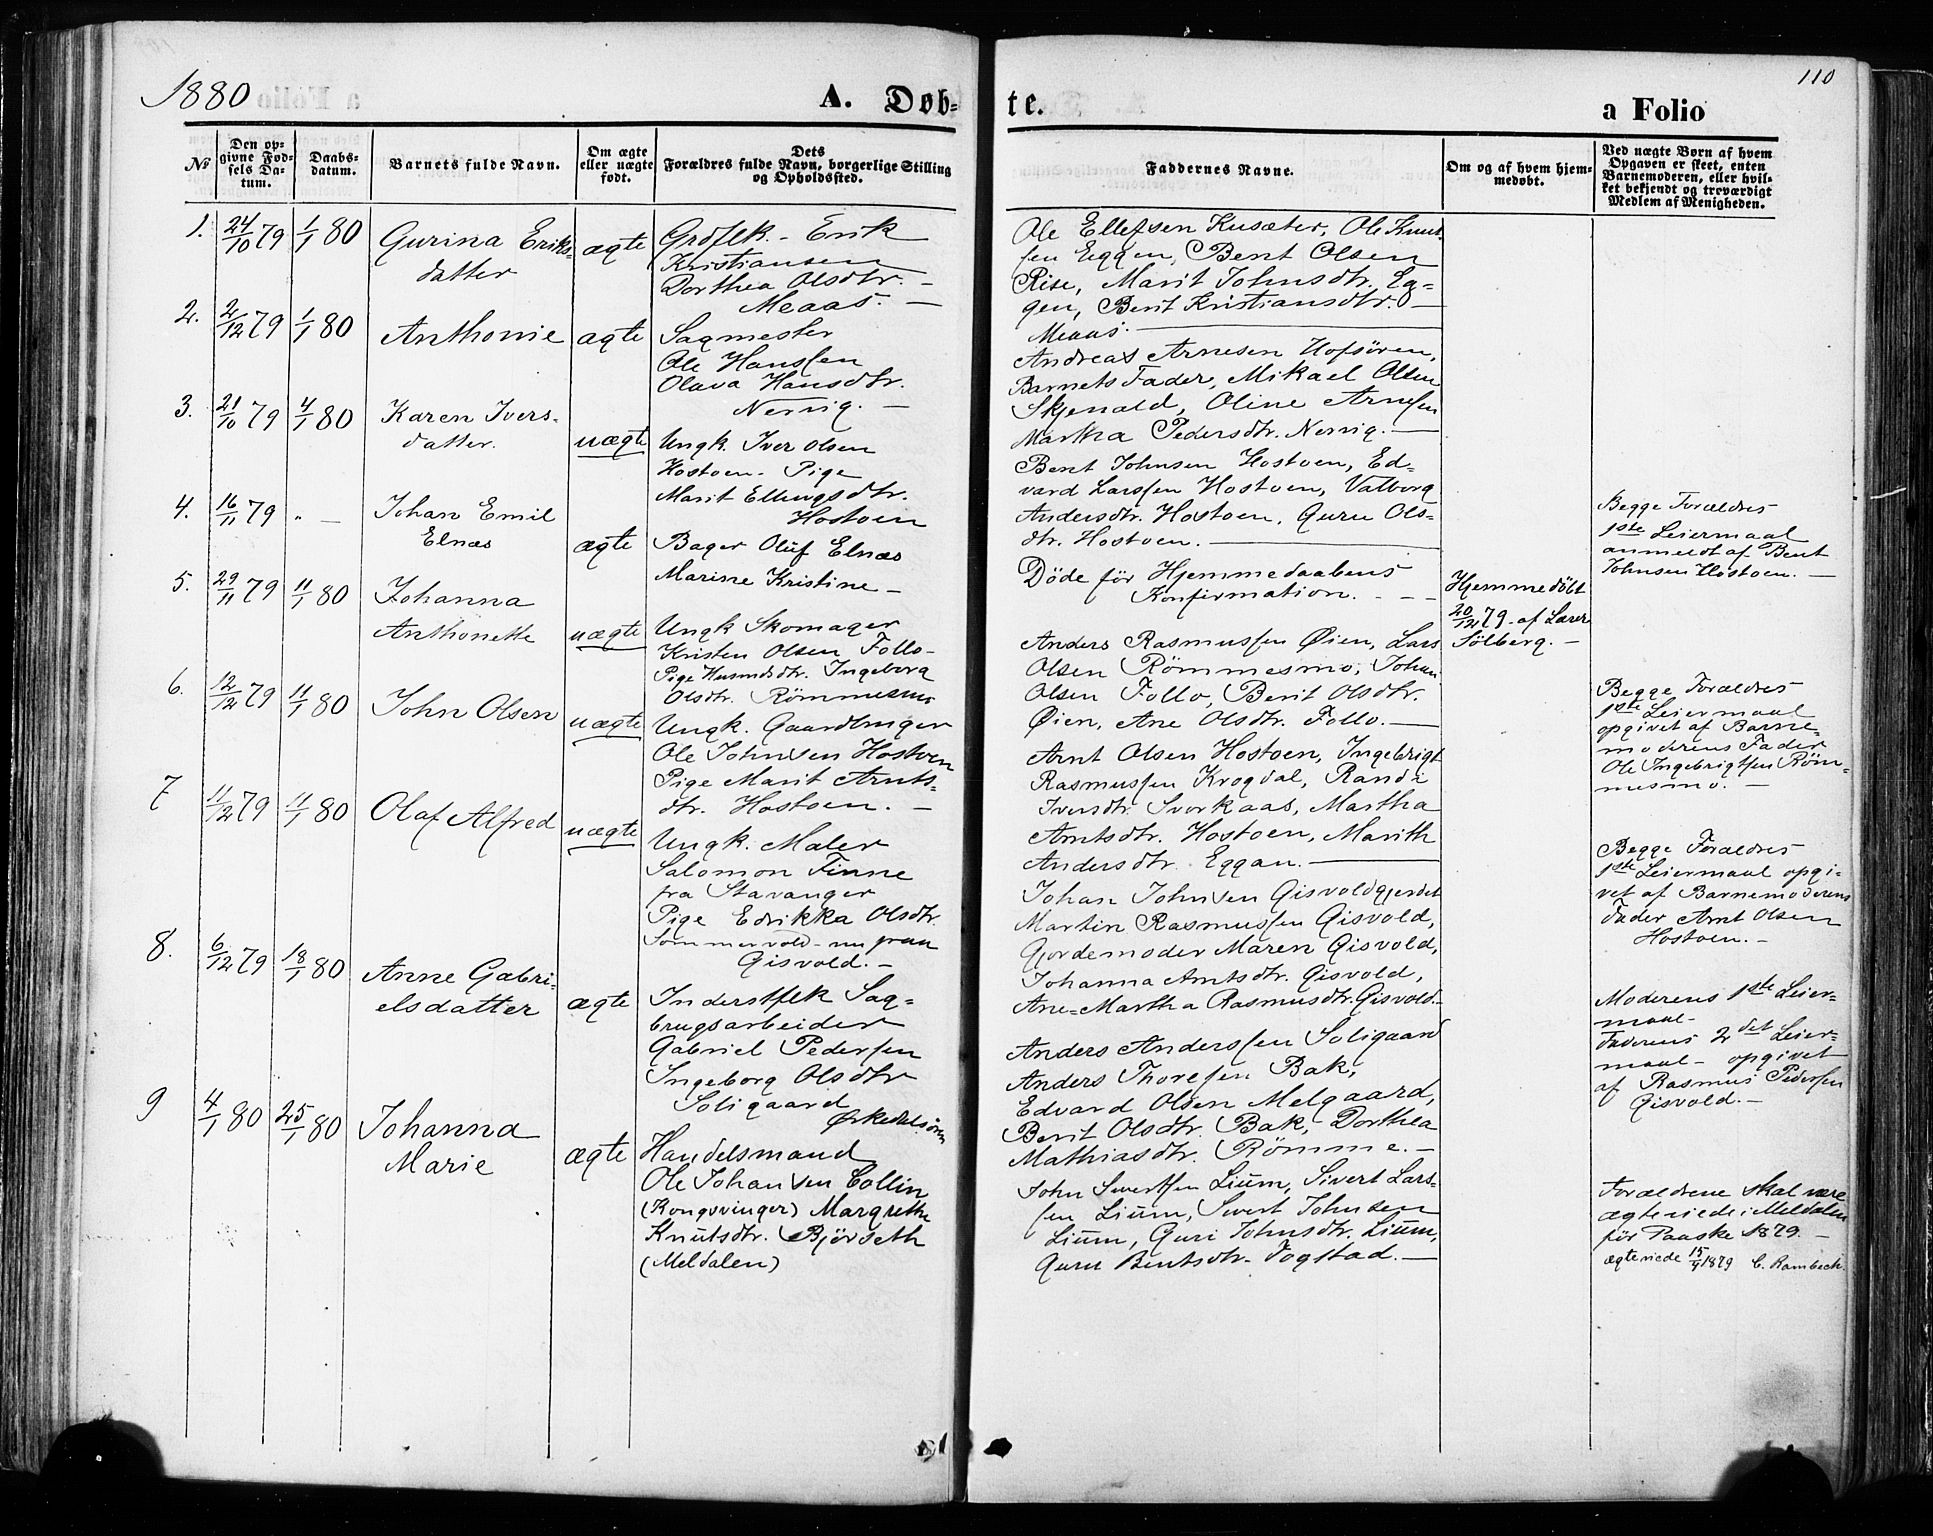 1880
A. Døb-
te.
a Folio
110
No
Den op-
givne Fød-
sels Da-
tum.
Daabs-
datum.
Barnets fulde Navn.
Om ægte
eller uægte
født.
Dets
Forældres fulde Navn, borgerlige Stilling
og Opholdssted.
Faddernes Navne.
Om og af hvem hjem-
medøbt.
Ved uægte Børn af hvem
Opgaven er skeet, enten
Barnemoderen, eller hvil-
ket bekjendt og troværdigt
Medlem af Menigheden.
1. 24/10 79 1/1 80 Gurina Eriks-
datter
ægte
Grdflk. - Erik
Kristiansen
Dorthea Olsdtr. -
Meaas. -
Ole Ellefsen Kusæter, Ole Knut-
sen Eggen, Berit Olsen
Rise, Marit Johnsdtr. Eg-
gen, Berit Kristiansdtr. -
Meaas.
2. 2/12 79 1/1 80 Anthonie ægte
Sagmester
Ole Hanssen
Olava Hansdtr.
Nervig. -
Andreas Arnesen Hofsøren,
Barnets Fader, Mikael Olsen
Skjenald, Oline Arnesen
Martha Pedersdtr. Nervig. -
3. 21/10 79 4/1 80 Karen Ivers-
datter.
uægte
Ungk. Iver Olsen
Hostoen - Pige
Marit Ellingsdtr.
Hostoen
Bent Johnsen Hostoen, Ed-
vard Larssen Hostoen, Valborg
Andersdtr. Hostoen, Guru Ols-
dtr. Hostoen.
Begge Forældres
1ste Leiermaal
anmeldt af Bent
Johnsen Hostoen. -
4. 16/11 79 " - Johan Emil
Elnæs
ægte
Bager Oluf Elnæs
Marine Kristine -
Døde før Hjemmedaabens
Konfirmation. - -
Hjemmedøbt
20/12 79 af Lærer
Sølberg. -
5. 29/11 79 11/1 80 Johanna
Anthonette
uægte
Ungk Skomager
Kristen Olsen Follo -
Pige Husmdsdtr. Ingeborg
Olsdtr. Rømmesmo
Anders Rasmussen Øien, Lars
Olsen Rømmesmo, Johan
Olsen Follo, Berit Olsdtr.
Øien, Ane Olsdtr. Follo. -
Begge Forældres
1ste Leiermaal
opgivet af Barne-
moderens Fader
Ole Ingebrigtsen Røm-
mesmo. -
6. 12/12 79 11/1 80 John Olsen
uægte
Ungk. Gaardbruger
Ole Johnsen Hostoen
Pige Marit Arnts-
dtr. Hostoen. -
Arnt Olsen Hostoen, Ingebrigt
Rasmussen Krogdal, Randi
Iversdtr. Svorkaas, Martha
Arntsdtr. Hostoen, Marith
Andersdtr. Eggan.
Begge Forældres
1ste Leiermaal opgi-
vet af Barnemoderens
Fader Arnt Olsen
Hostoen. -
7 11/12 79 11/1 80 Olaf Alfred
uægte
Ungk. Maler
Salomon Finne
fra Stavanger
Pige Edrikka Olsdtr.
Sommervold - nu paa
Gisvold. -
Johan Johnsen Gisvoldgjerdet
Martin Rasmussen Gisvold,
Gjordemoder Maren Gisvold,
Johanna Arntsdtr. Gisvold,
Ane-Martha Rasmusdtr. Gisvold. -
Moderens 1ste Leier-
maal -
Faderens 2det Leier-
maal - opgivet
af Rasmus Pedersen
Gisvold. -
8. 6/12 79 18/1 80 Anne Gabri-
elsdatter
ægte
Inderstflk Sag-
brugsarbeider
Gabriel Pedersen
Ingeborg Olsdtr
Soligaard
Ørkedalsøren
Anders Anderssen Soligaard
Anders Thoresen Bak,
Edvard Olsen Melgaard,
Berit Olsdtr. Bak, Dorthea
Mathiasdtr. Rømme. -
9 4/1 80 25/1 80 Johanna
Marie
ægte
Handelsmand
Ole Johansen Collin
(Kongsvinger) Margrethe
Knutsdtr. Bjørseth
(Meldalen)
John Sivertsen Lium, Sivert Lars-
sen Lium, Sivert Johnsen
Lium, Guri Johnsdtr. Lium,
Guru Bentsdtr. Fogstad. -
Forældrene skal være
ægteviede i Meldalen
før Paaske 1879. -
ægteviede 15/9 1879 C. Rambech.